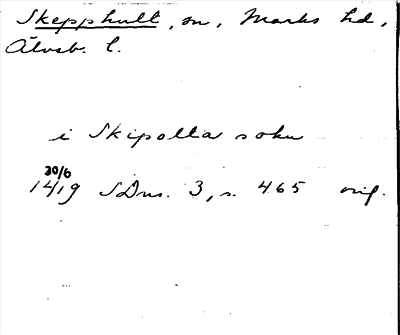 Skepphult, sn, Marks hd,
Älvsb. l.
i Skipolla sokn
30/6
1419 SDns. 3, s. 465 orig.